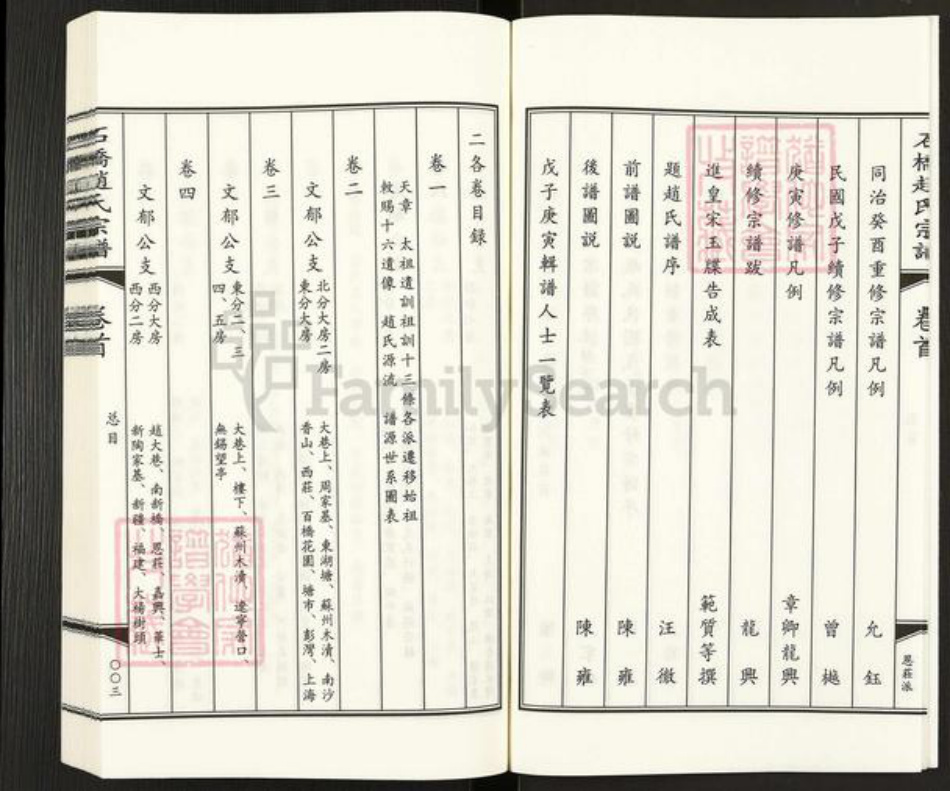 石橋趙氏宗譜 卷首 恩莊派
同治癸酉重修宗譜凡例 允鈺
民國戊子續修宗譜凡例 曾樾
庚寅修譜凡例 章卿龍興
續修宗譜跋 龍興
進皇宋玉牒告成表 範質等撰
題趙氏譜序 汪徹
前譜圖説 陳雍
後譜圖説 陳雍
戊子庚寅輯譜人士一覽表
二各卷目録
卷一
天章 太祖遺訓祖訓十三條各派遷移始祖
敕賜十六遺像 趙氏源流 譜源世系圖表
卷二
文郁公支
北分大房二房 大巷上、周家基、東湖塘、蘇州木瀆、南沙
東分大房 香山、西莊、百橋花園、塘市、彭灣、上海
卷三
文郁公支
東分二、三 大巷上、樓下、蘇州木瀆、遼寧營口、
四、五房 無錫望亭
卷四
文郁公支
西分大房 趙大巷、南新橋、恩莊、嘉興、華士、
西分二房 新陶家基、新疆、福建、大楊樹頭
石橋趙氏宗譜 卷首 总目 〇〇三
FamilySearch